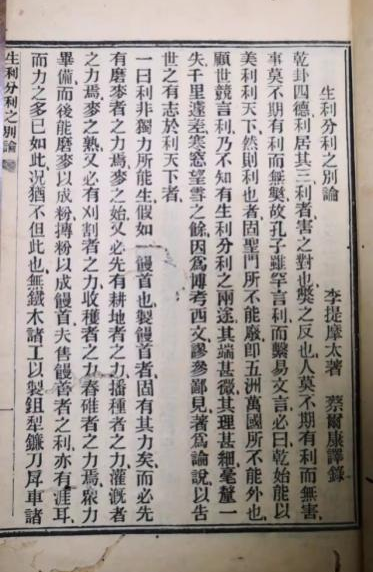 生利分利之別論
李提摩太著 蔡爾康譯錄
乾卦四德、利居其三、利者害之對也、獘之反也、人莫不期有利而無害、
事莫不期有利而無獘、故孔子雖罕言利、而繫易文言、必曰乾始能以
美利利天下、然則利也者、固聖門所不能廢、即五洲萬國所不能外也、
顧世競言利、乃不知有生利分利之兩途、其端甚微、其理甚細、毫釐一
失、千里遽差、寒窓望雪之餘、因爲博考西文、謬參鄙見、著爲論說、以告
世之有志於利天下者、
一曰利非獨力所能生、假如一饅首也、製饅首者、固有其力矣、而必先
有磨麥者之力焉、麥之始、又必先有耕地者之力、播種者之力、灌漑者
之力焉、麥之熟、又必有刈割者之力、收穫者之力、舂碓者之力焉、衆力
畢備、而後能磨麥以成粉、摶粉以成饅首、夫售饅首者之利、亦有涯耳、
而力之多已如此、況猶不但此也、無鐵木諸工以製鉏犁鐮刀戽車諸
生利分利之別論